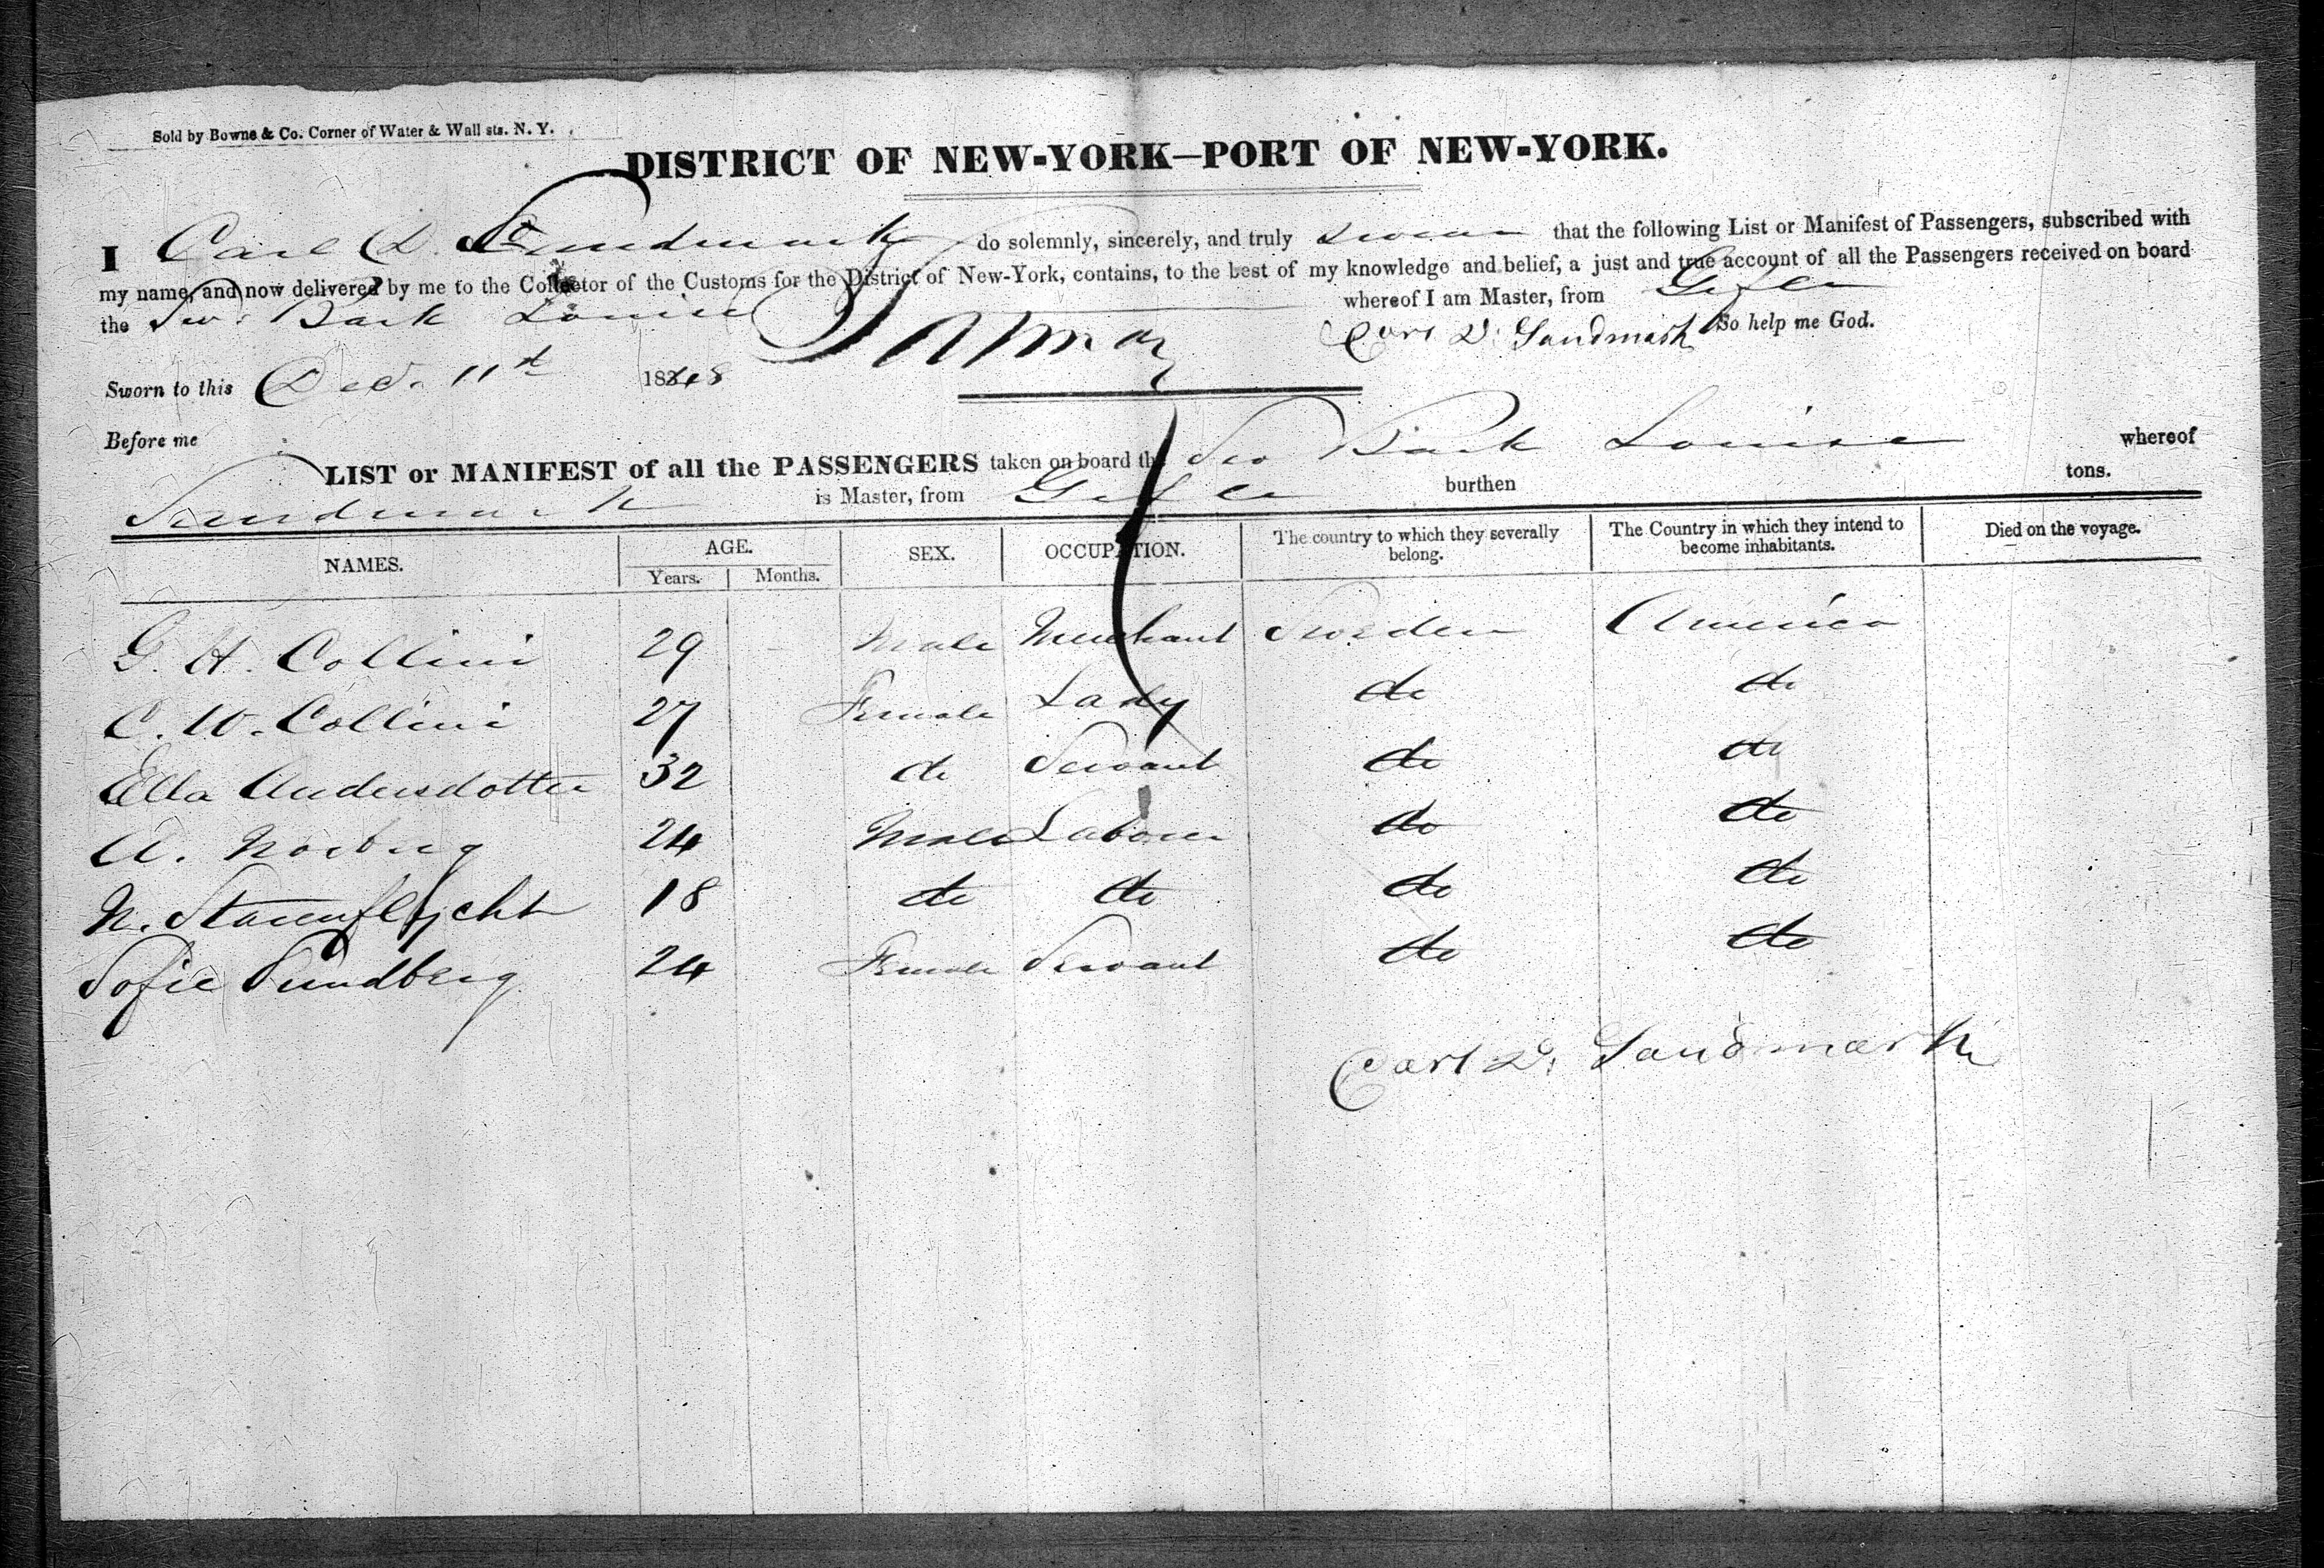 Sold by Bowne & Co. Corner of Water & Wall sts. N. Y.
DISTRICT OF NEW-YORK—PORT OF NEW-YORK.
I Carl D. Sundmark do solemnly, sincerely, and truly swear that the following List or Manifest of Passengers, subscribed with
my name, and now delivered by me to the Collector of the Customs for the District of New-York, contains, to the best of my knowledge and belief, a just and true account of all the Passengers received on board
the Sw: Bark Louise whereof I am Master, from Gefle
Carl D. Sundmark So help me God.
Sworn to this Dec. 11th 1848
Before me
LIST or MANIFEST of all the PASSENGERS taken on board the Sw Bark Louise whereof
Sundmark is Master, from Gefle burthen tons.
NAMES. AGE. Years. Months. SEX. OCCUPATION. The country to which they severally belong. The Country in which they intend to become inhabitants. Died on the voyage.
G. H. Collini 29 Male Merchant Sweden America
C. W. Collini 27 Female Lady do do
Ella Andersdotter 32 do Servant do do
A. Norberg 24 Male Labourer do do
N. 18 do do do do
Sofie Sundberg 24 Female Servant do do
Carl D. Sundmark